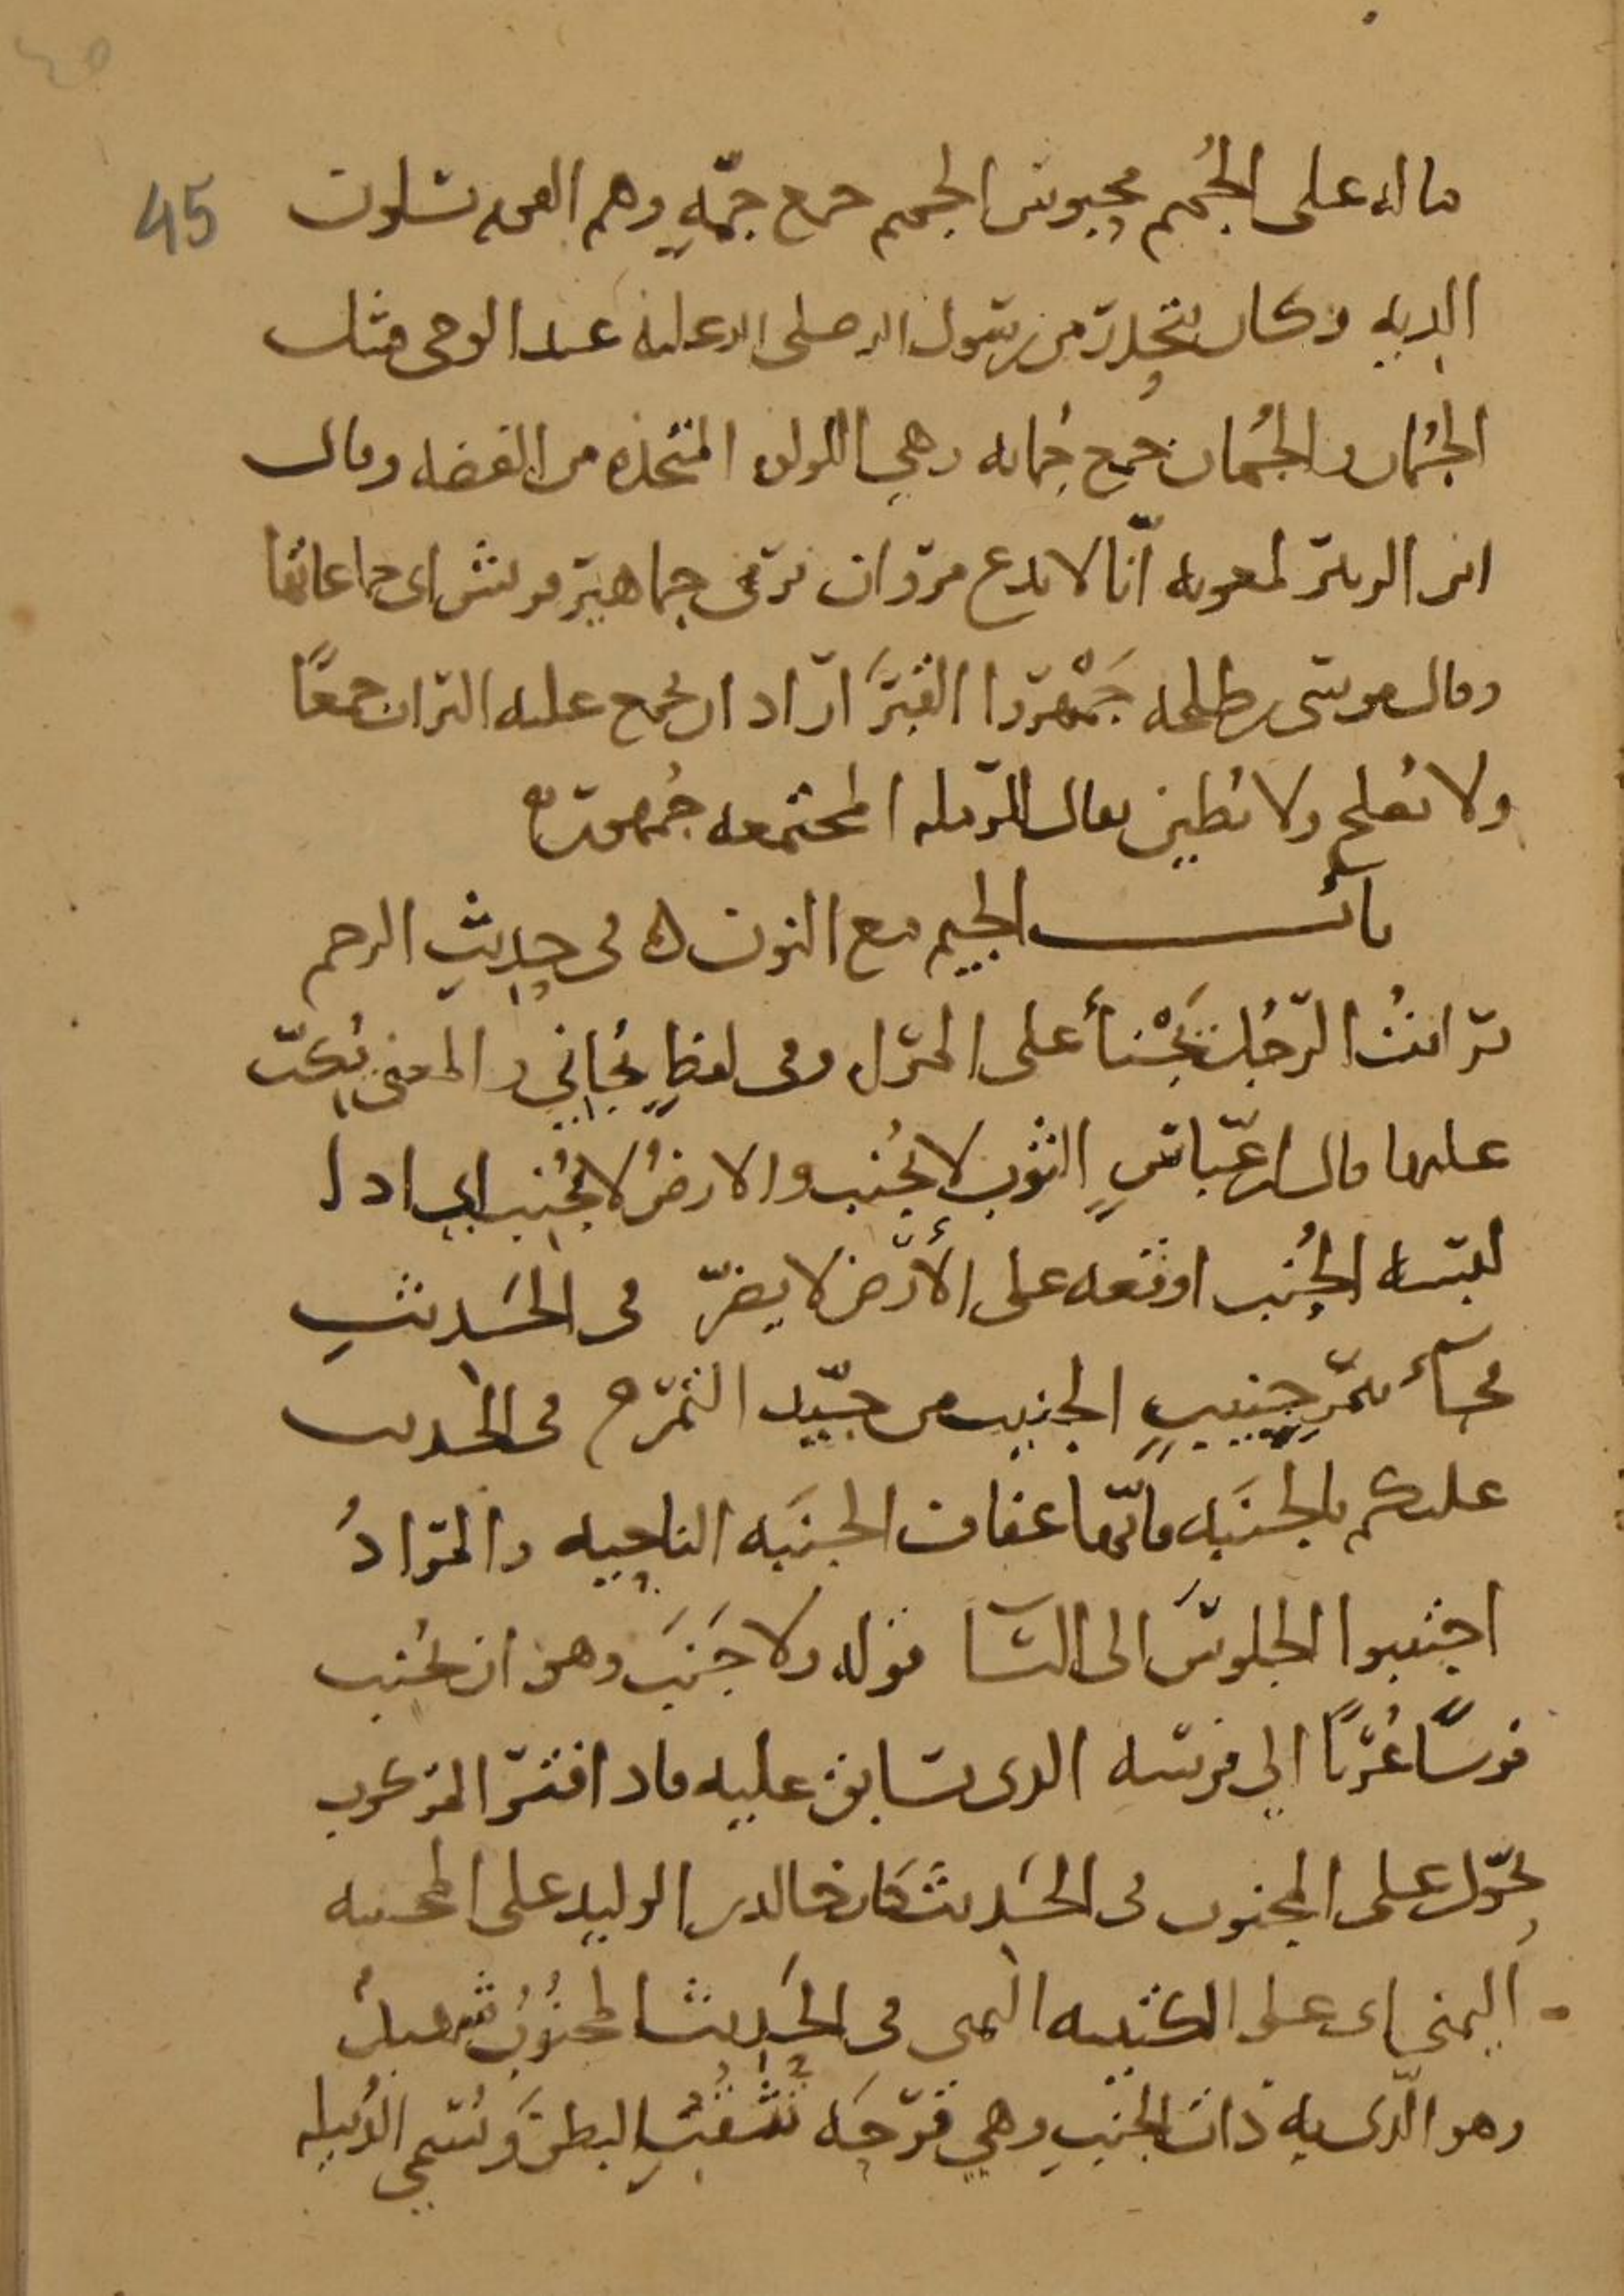 45
ماله على الجُمم محبوس الجمم جمع جمّةٍ وهم القوم يسلون
الديه وكان يتحدر من رسول الله صلى الله عليه عند الوحى مثل
الجُمان والجُمان جمع جُمانه وهي اللولوه المتخذه من الفضه وقال
ابن الزبير لمعويه انّا لا ندع مروان يرمى جماهير قريش اى جماعاتها
وقال موسى بن طلحه جَمْهروا القبرَ اراد ان يجمع عليه التراب جمعًا
ولا تصلح ولا تطين يقال للرمله المجتمعه جُمهور
باب الجيم مع النون ه فى حديث الرجم
فرايتُ الرّجُل يَجْنأ على المرأه وفى لفظٍ يُجانى والمعنى يُكبّ
عليها قال ابن عبّاسٍ الثوب لا يُجنب والارضُ لا تُجنب اى اذا
لبسه الجُنب او وقعه على الأرض لا يضرّ فى الحَديث
فجاءَ بتمرٍ جنيبٍ الجنيب من جيّد التمر ه فى الحديث
عليكم بالجنبَه فانّها عفاف الجنبَه الناحيه والمرادُ
اجتنبوا الجلوسَ الى النسا قوله ولا جَنَبَ وهو ان يجنب
فرسًا عُريًا الى فرسه الذى يسابق عليه فاذا فتر المركوب
تحوّل على المجنوب فى الحَديث كان خالد بن الوليد على المجنبه
اليمنى اى على الكتيبه اليمنى فى الحَديث المجنُوبُ شهيدٌ
وهو الّذى به ذات الجنبِ وهي قرحَه تَثقُبُ البطنَ وتُسمى الدُبيله